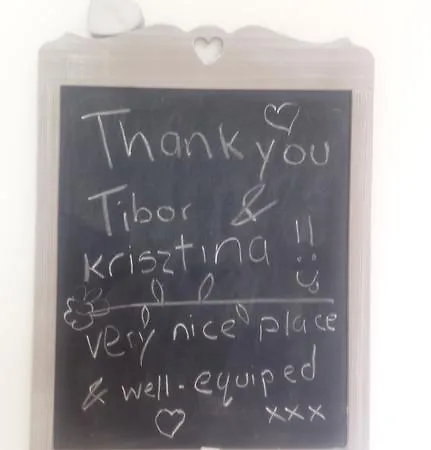 Thank you
Tibor &
Krisztina !!
very nice place
& well-equiped
xxx